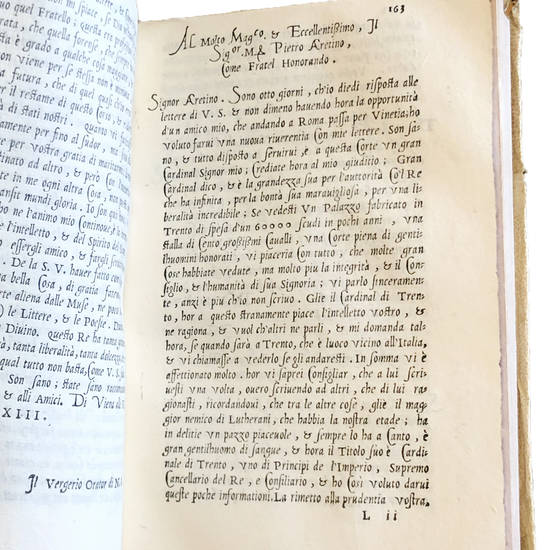 mi spiate, se Do
quel Fratello; che
rata, che
che quella forese, che
è grado a qualche cosa
non viene per se stessa non
futura, che di quel
per il restame di questo Corio, &
di stati nostri. quarto vi
prima per fino al sudor,
tinato ad altro, & però
per vostra gratia di
in me ogni altra Cosa,
ansit mundi gloria. Io son qui
ne l'animo mio Continouo; le
e l'intelletto, & del Spirito del
essergli amico, &
De la S. V. hauer fatto
na bella Cosa, di gratia
orte aliena dalle Muse, ne
) le Littere, & le Poesie.
Diuino. questo Re ha tanta
tà, tanta liberalità, tanta
qual tutto non basta, come V. S.
Son sano; state sano
& alli Amici. Di Viena di
XIII.
Il Vergerio Orator di
163
Al Molto Magco. & Eccellentißimo, Il
Sigor. M. Pietro Aretino,
Come Fratel Honorando.
Signor Aretino. Sono otto giorni, ch'io diedi risposta alle
lettere di V. S. & non dimeno hauendo hora la opportunità
d'un amico mio, che andando a Roma passa per Vinetia; ho
voluto farui una nuoua riuerentia Con mie lettere. Son sa
no, & tutto disposto a seruirui, e a questa Corte un gran
Cardinal Signor mio; Crediate hora al mio giuditio; Gran
Cardinal dico, & è la grandezza sua per l'auttorità Co'l Re
che ha infinita, per la bontà sua marauigliosa, per una li
beralità incredibile; Se vedesti Vn Palazzo fabricato in
Trento di spesa d'un 60000 scudi in pochi anni, una
stalla di Cento großißimi Caualli, una Corte piena di genti
l'huomini honorati, vi piaceria con tutto, che molte gran
Cose habbiate vedute, ma molto piu la integrità, & il Con
siglio, & l'humanità di sua Signoria; vi parlo sinceramen
te, anzi è piu ch'io non scriuo. Glie il Cardinal di Tren
to, hor a questo stranamente piace l'intelletto vostro, &
ne ragiona, & vuol ch'altri ne parli, & mi domanda tal
hora, se quando sarà a Trento, che è luoco vicino all'Italia,
& vi chiamasse a vederlo se gli andaresti. In somma vi è
affettionato molto. hor vi saprei Consigliar, che a lui scri
uesti una volta, ouero scriuendo ad altri, che di lui ra
gionasti, ricordandoui, che tra le altre cose, gliè il mag
gior nemico di Lutherani, che habbia la nostra etade; ha
in delitie un pazzo piaceuole, & sempre lo ha a Canto, è
gran gentilhuomo di sangue, & hora il Titolo suo è Cardi
nale di Trento, uno di Principi de l'Imperio, Supremo
Cancellario del Re, e Consiliario, & ho Cosi voluto darui
queste poche informationi. La rimetto alla prudentia vostra,
L ii